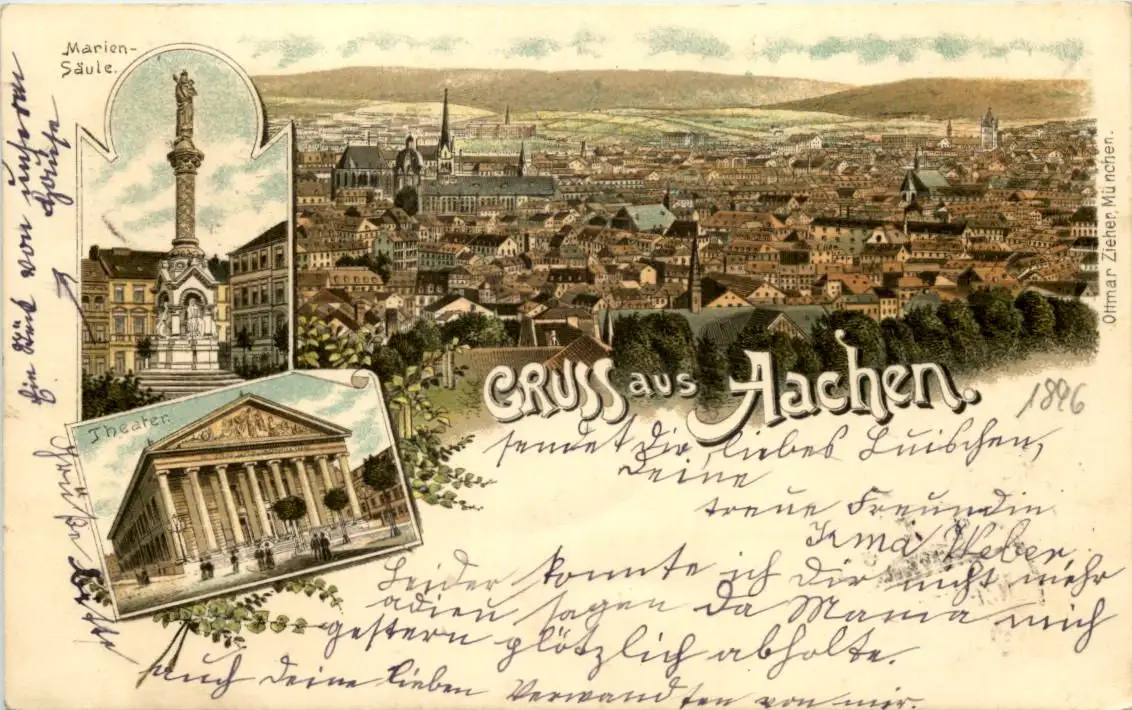 Marien-
Säule.
Theater.
GRUSS aus Aachen.
Ottmar Zieher, München.
1896
sendet Dir, liebes Luischen,
Deine
treue Freundin
Irma Weber.
Leider konnte ich Dir nicht mehr
adieu sagen da Mama mich
gestern plötzlich abholte.
auch Deine lieben Verwandten von mir.
Ein Stück von unserm
Hause